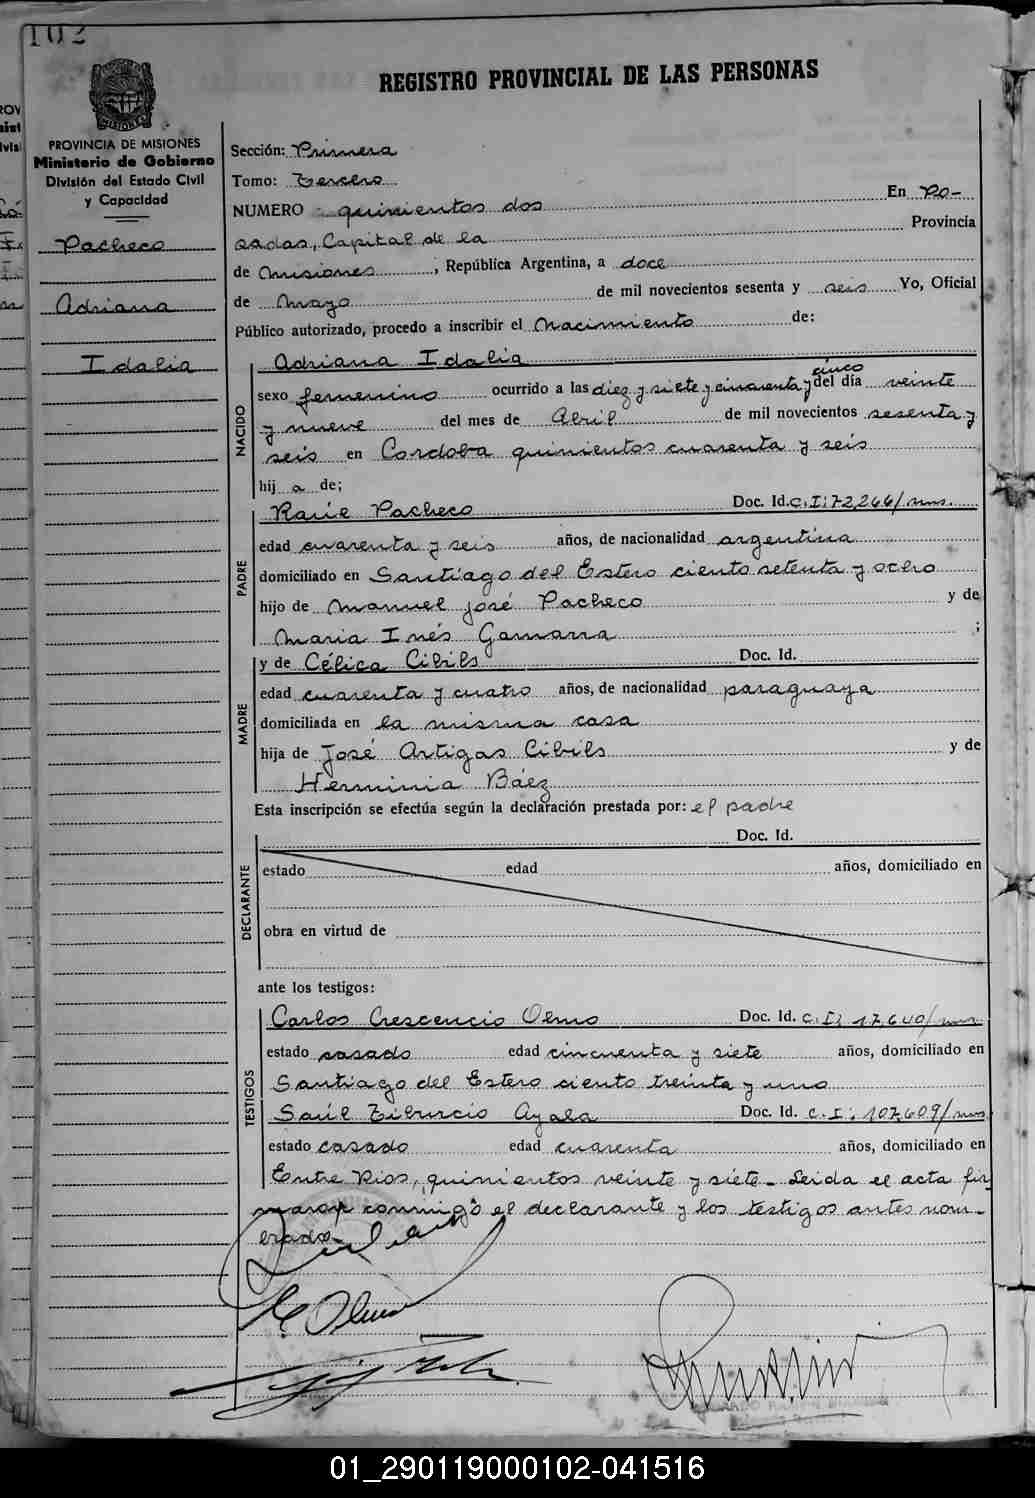 102
REGISTRO PROVINCIAL DE LAS PERSONAS
MISIONES
PROVINCIA DE MISIONES
Ministerio de Gobierno
División del Estado Civil
y Capacidad
Pacheco
Adriana
Idalia
Sección: Primera
Tomo: Tercero
NUMERO quinientos dos En Po-
sadas, Capital de la Provincia
de Misiones, República Argentina, a doce
de Mayo de mil novecientos sesenta y seis Yo, Oficial
Público autorizado, procedo a inscribir el Nacimiento de:
NACIDO
Adriana Idalia
cinco
sexo femenino ocurrido a las diez y siete y cincuenta y del día veinte
y nueve del mes de Abril de mil novecientos sesenta y
seis en Cordoba quinientos cuarenta y seis
hij a de;
PADRE
Raúl Pacheco Doc. Id. C.I: 72,266/mns.
edad cuarenta y seis años, de nacionalidad argentina
domiciliado en Santiago del Estero ciento setenta y ocho
hijo de Manuel José Pacheco y de
Maria Inés Gamarra ;
MADRE
y de Célica Cibils Doc. Id.
edad cuarenta y cuatro años, de nacionalidad paraguaya
domiciliada en la misma casa
hija de José Artigas Cibils y de
Herminia Báez
Esta inscripción se efectúa según la declaración prestada por: el padre
DECLARANTE
Doc. Id.
estado edad años, domiciliado en
obra en virtud de
ante los testigos:
TESTIGOS
Carlos Crescencio Olmo Doc. Id. C.I; 17,640/mns.
estado casado edad cincuenta y siete años, domiciliado en
Santiago del Estero ciento treinta y uno
Saúl Tiburcio Ayala Doc. Id. C.I: 107,609/mns.
estado casado edad cuarenta años, domiciliado en
Entre Rios, quinientos veinte y siete_ Leida el acta fir
maron conmigo el declarante y los testigos antes nom-
erados-
C Olmo
01_290119000102-041516